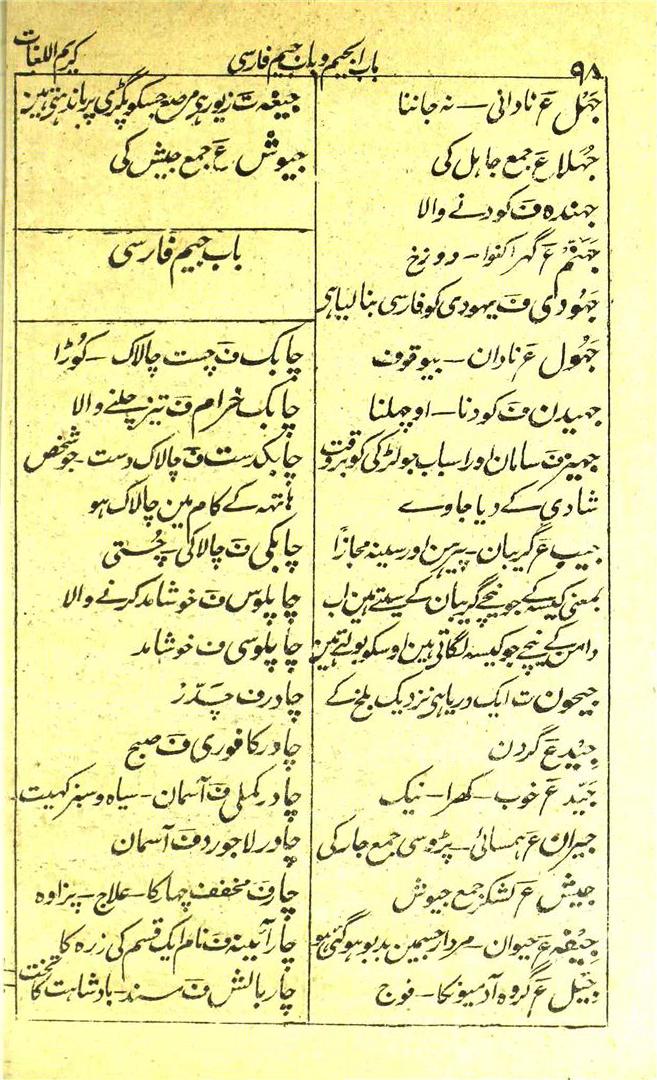 ۹۸
باب الجیم و باب جیم فارسی
کریم اللغات
جہل ع نادانی ۔ نہ جاننا
جہلا ع جمع جاہل کی
جہندہ ف کودنے والا
جہنم ع گہرا کنوا ۔ دوزخ
جہودی ف یہودی کو فارسی بنا لیا ہی
جہول ع نادان ۔ بیوقوف
جہیدن ف کودنا ۔ اوچہلنا
جہیز ف سامان اور اسباب جو لڑکی کو بروقت
شادی کے دیا جاوے
جیب ع گریبان ۔ پیرہن اور سینہ مجازاً
بمعنی کیسہ کے جو نیچے گریبان کے سیتے ہین اب
دامن کے نیچے جو کیسہ لگاتی ہین اوسکو بولتے ہین
جیحون ت ایک دریا ہی نزدیک بلخ کے
جید ع گردن
جید ع خوب ۔ کھرا ۔ نیک
جیران ع ہمسائی ۔ پڑوسی جمع جار کی
جیش ع لشکر جمع جیوش
جیفہ ع حیوان ۔ مردار جسمین بدبو ہو گئی ہو
جیل ع گروہ آدمیونکا ۔ فوج
جیغہ ت زیور ہی مرصع جسکو پگڑی پر باندہتی ہین
جیوش ع جمع جیش کی
باب جیم فارسی
چابک ف چست چالاک ۔ کوڑا
چابک خرام ف تیز چلنے والا
چابکدست ف چالاک دست ۔ جو شخص
ہاتہہ کے کام مین چالاک ہو
چابکی ف چالاکی ۔ چستی
چاپلوس ف خوشامد کرنے والا
چاپلوسی ف خوشامد
چادر ف چدر
چادر کافوری ف صبح
چادر کحلی ف آسمان ۔ سیاہ و سبز کہیت
چادر لاجورد ف آسمان
چار ف مخفف چہار کا ۔ علاج ۔ پزاوہ
چار آئینہ ف نام ایک قسم کی زرہ کا
چار بالش ف مسند ۔ بادشاہت کا تخت